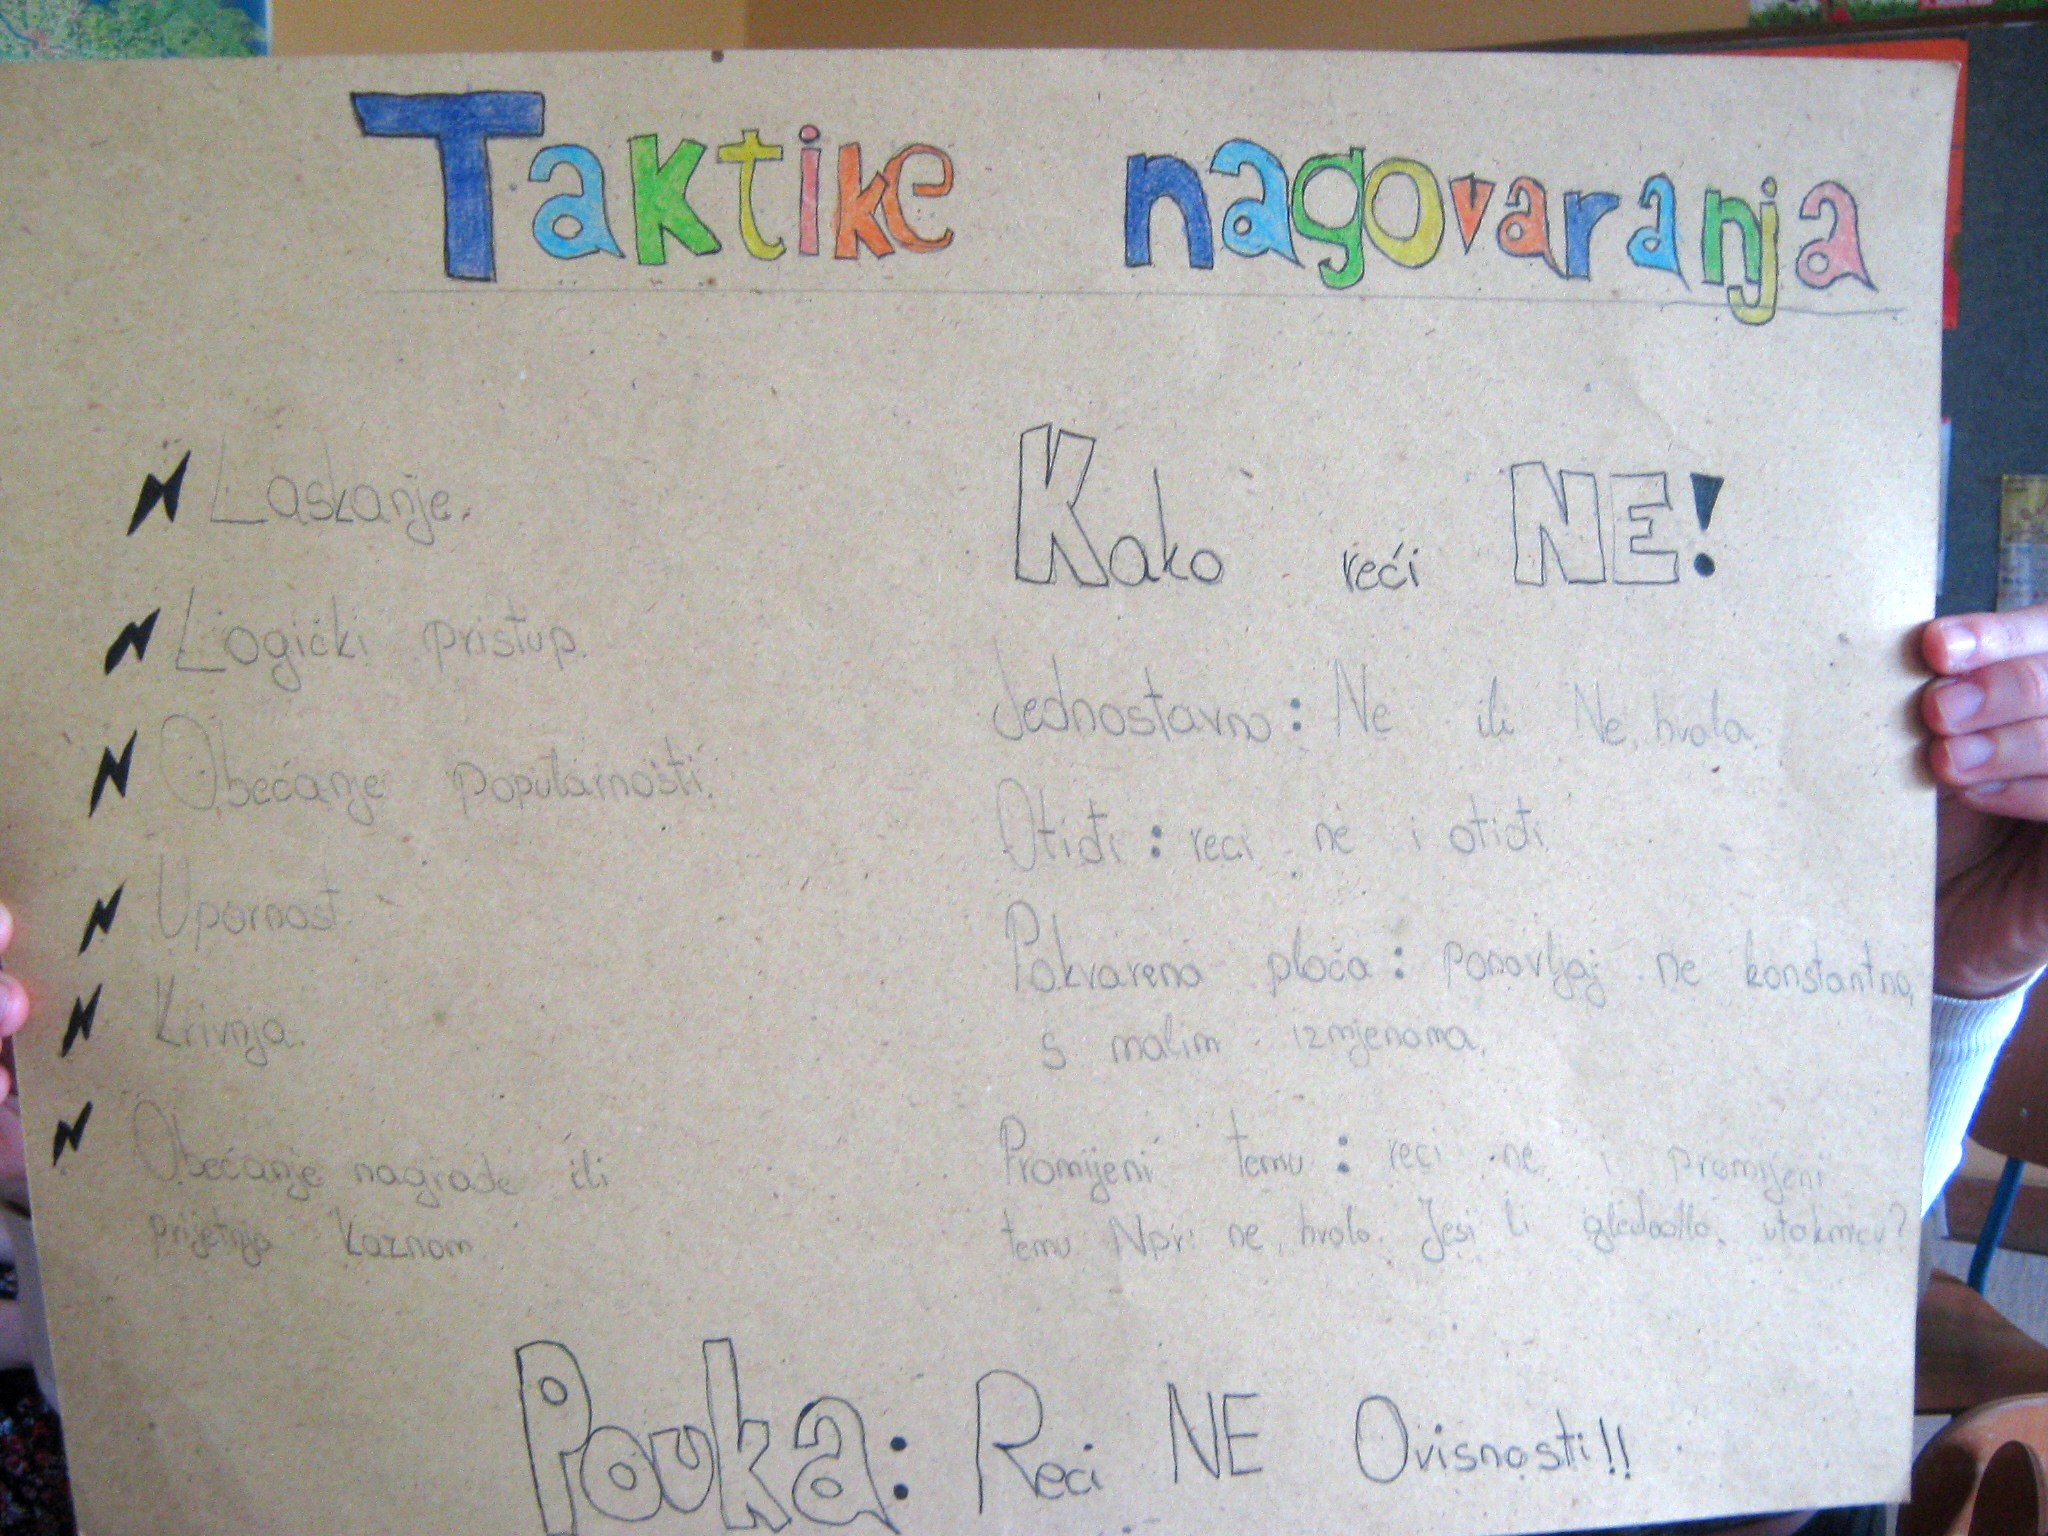 Taktike nagovaranja
Laskanje.
Logički pristup.
Obećanje popularnosti.
Upornost.
Krivnja.
Obećanje nagrade ili
prijetnja kaznom
Kako reći NE!
Jednostavno: Ne ili Ne, hvala.
Otiđi: reci ne i otiđi
Pokvarena ploča: ponavljaj ne konstantno,
s malim izmjenama.
Promijeni temu: reci ne i promijeni
temu Npr: ne, hvala. Jesi li utakmicu?
Pouka: Reci NE Ovisnosti!!